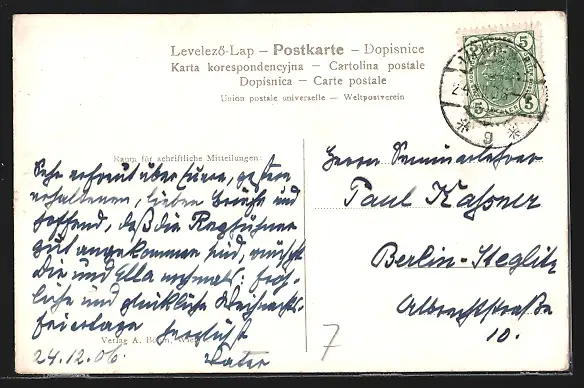 Levelező-Lap – Postkarte – Dopisnice
Karta korespondencyjna – Cartolina postale
Dopisnica – Carte postale
Union postale universelle – Weltpostverein
5 5
5 5
24
* 9 *
Raum für schriftliche Mitteilungen:
Sehr erfreut über Eueren, gestern
erhaltenen, lieben Brief und
hoffend, daß die Rebhühner
gut angekommen sind, wünscht
Dir und Ella nochmals fröh-
liche und glückliche Weihnachts-
feiertage herzlichst
Verlag A. Böhm, Wien
24.12.06. Vater
Herrn Seminarlehrer
Paul Kassner
Berlin-Steglitz
Albrechtstraße
10.
7